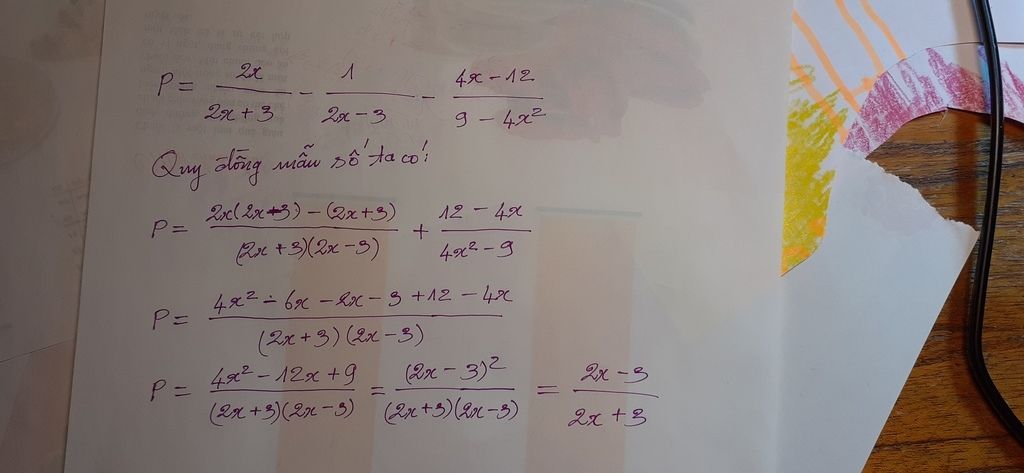 P = 2x/(2x+3) - 1/(2x-3) - (4x-12)/(9-4x²)
Quy đồng mẫu số ta có:
P = (2x(2x-3)-(2x+3))/((2x+3)(2x-3)) + (12-4x)/(4x²-9)
P = (4x²-6x-2x-3+12-4x)/((2x+3)(2x-3))
P = (4x²-12x+9)/((2x+3)(2x-3)) = (2x-3)²/((2x+3)(2x-3)) = (2x-3)/(2x+3)